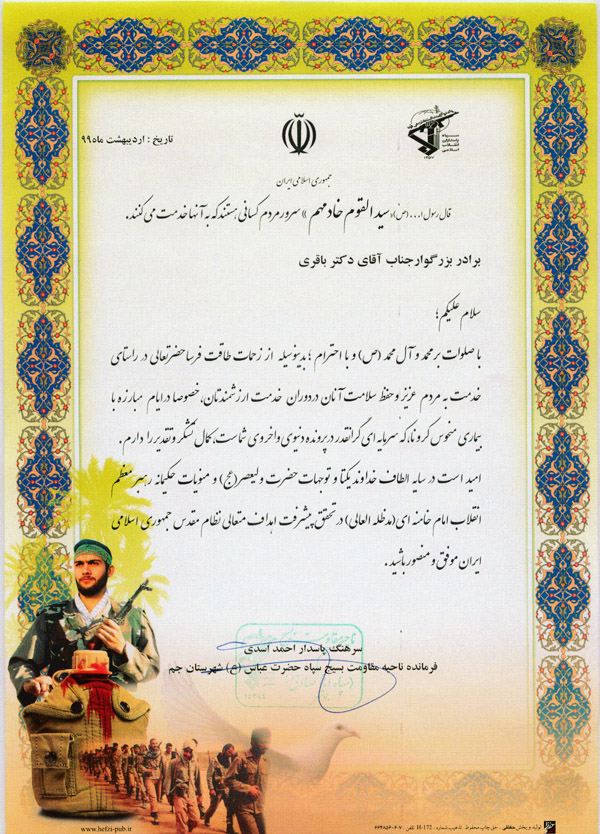 سپاه
پاسداران
انقلاب
اسلامی
تاریخ : اردیبهشت ماه ۹۹
جمهوری اسلامی ایران
قال رسول ا... (ص): «سید القوم خادمهم» سرور مردم کسانی هستند که به آنها خدمت می کنند.
برادر بزرگوار جناب آقای دکتر باقری
سلام علیکم؛
با صلوات بر محمد و آل محمد (ص) و با احترام ؛ بدینوسیله از زحمات طاقت فرسا حضرتعالی در راستای
خدمت به مردم عزیز و حفظ سلامت آنان در دوران خدمت ارزشمندتان، خصوصا در ایام مبارزه با
بیماری منحوس کرونا، که سرمایه ای گرانقدر در پرونده دنیوی و اخروی شماست، کمال تشکر و تقدیر را دارم.
امید است در سایه الطاف خداوند یکتا و توجهات حضرت ولیعصر (عج) و منویات حکیمانه رهبر معظم
انقلاب امام خامنه ای (مدظله العالی) در تحقق پیشرفت اهداف متعالی نظام مقدس جمهوری اسلامی
ایران موفق و منصور باشید .
سرهنگ پاسدار احمد اسدی
فرمانده ناحیه مقاومت بسیج سپاه حضرت عباس (ع) شهرستان جم
www.hefzi-pub.ir
تولید و پخش حفظی . حق چاپ محفوظ. تذهیب شماره: H-172 تلفن: ۶۶۴۸۵۶۰۶-۷